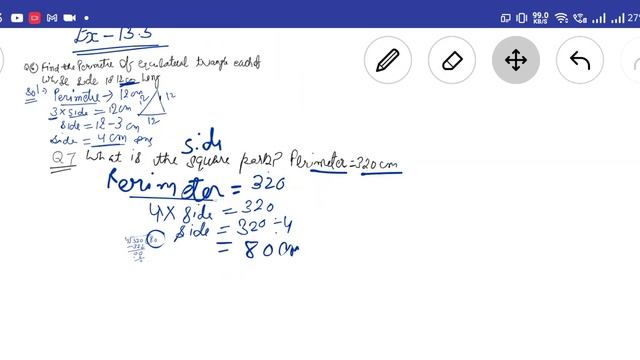 99.0 KB/S
27%
2x - 13.5
Q6) Find the Permitre Of equilateral triangle each of
whose side is 12cm long
Sol:- Perimetre → 12cm
12
12
12
3 × side = 12 cm
side = 12-3 cm
side = 4 cm ans
side
Q7 What is the square park? Perimeter = 320 cm
Perimeter = 320
4 × side = 320
side = 320 ÷ 4
= 80 cm
4 320 80